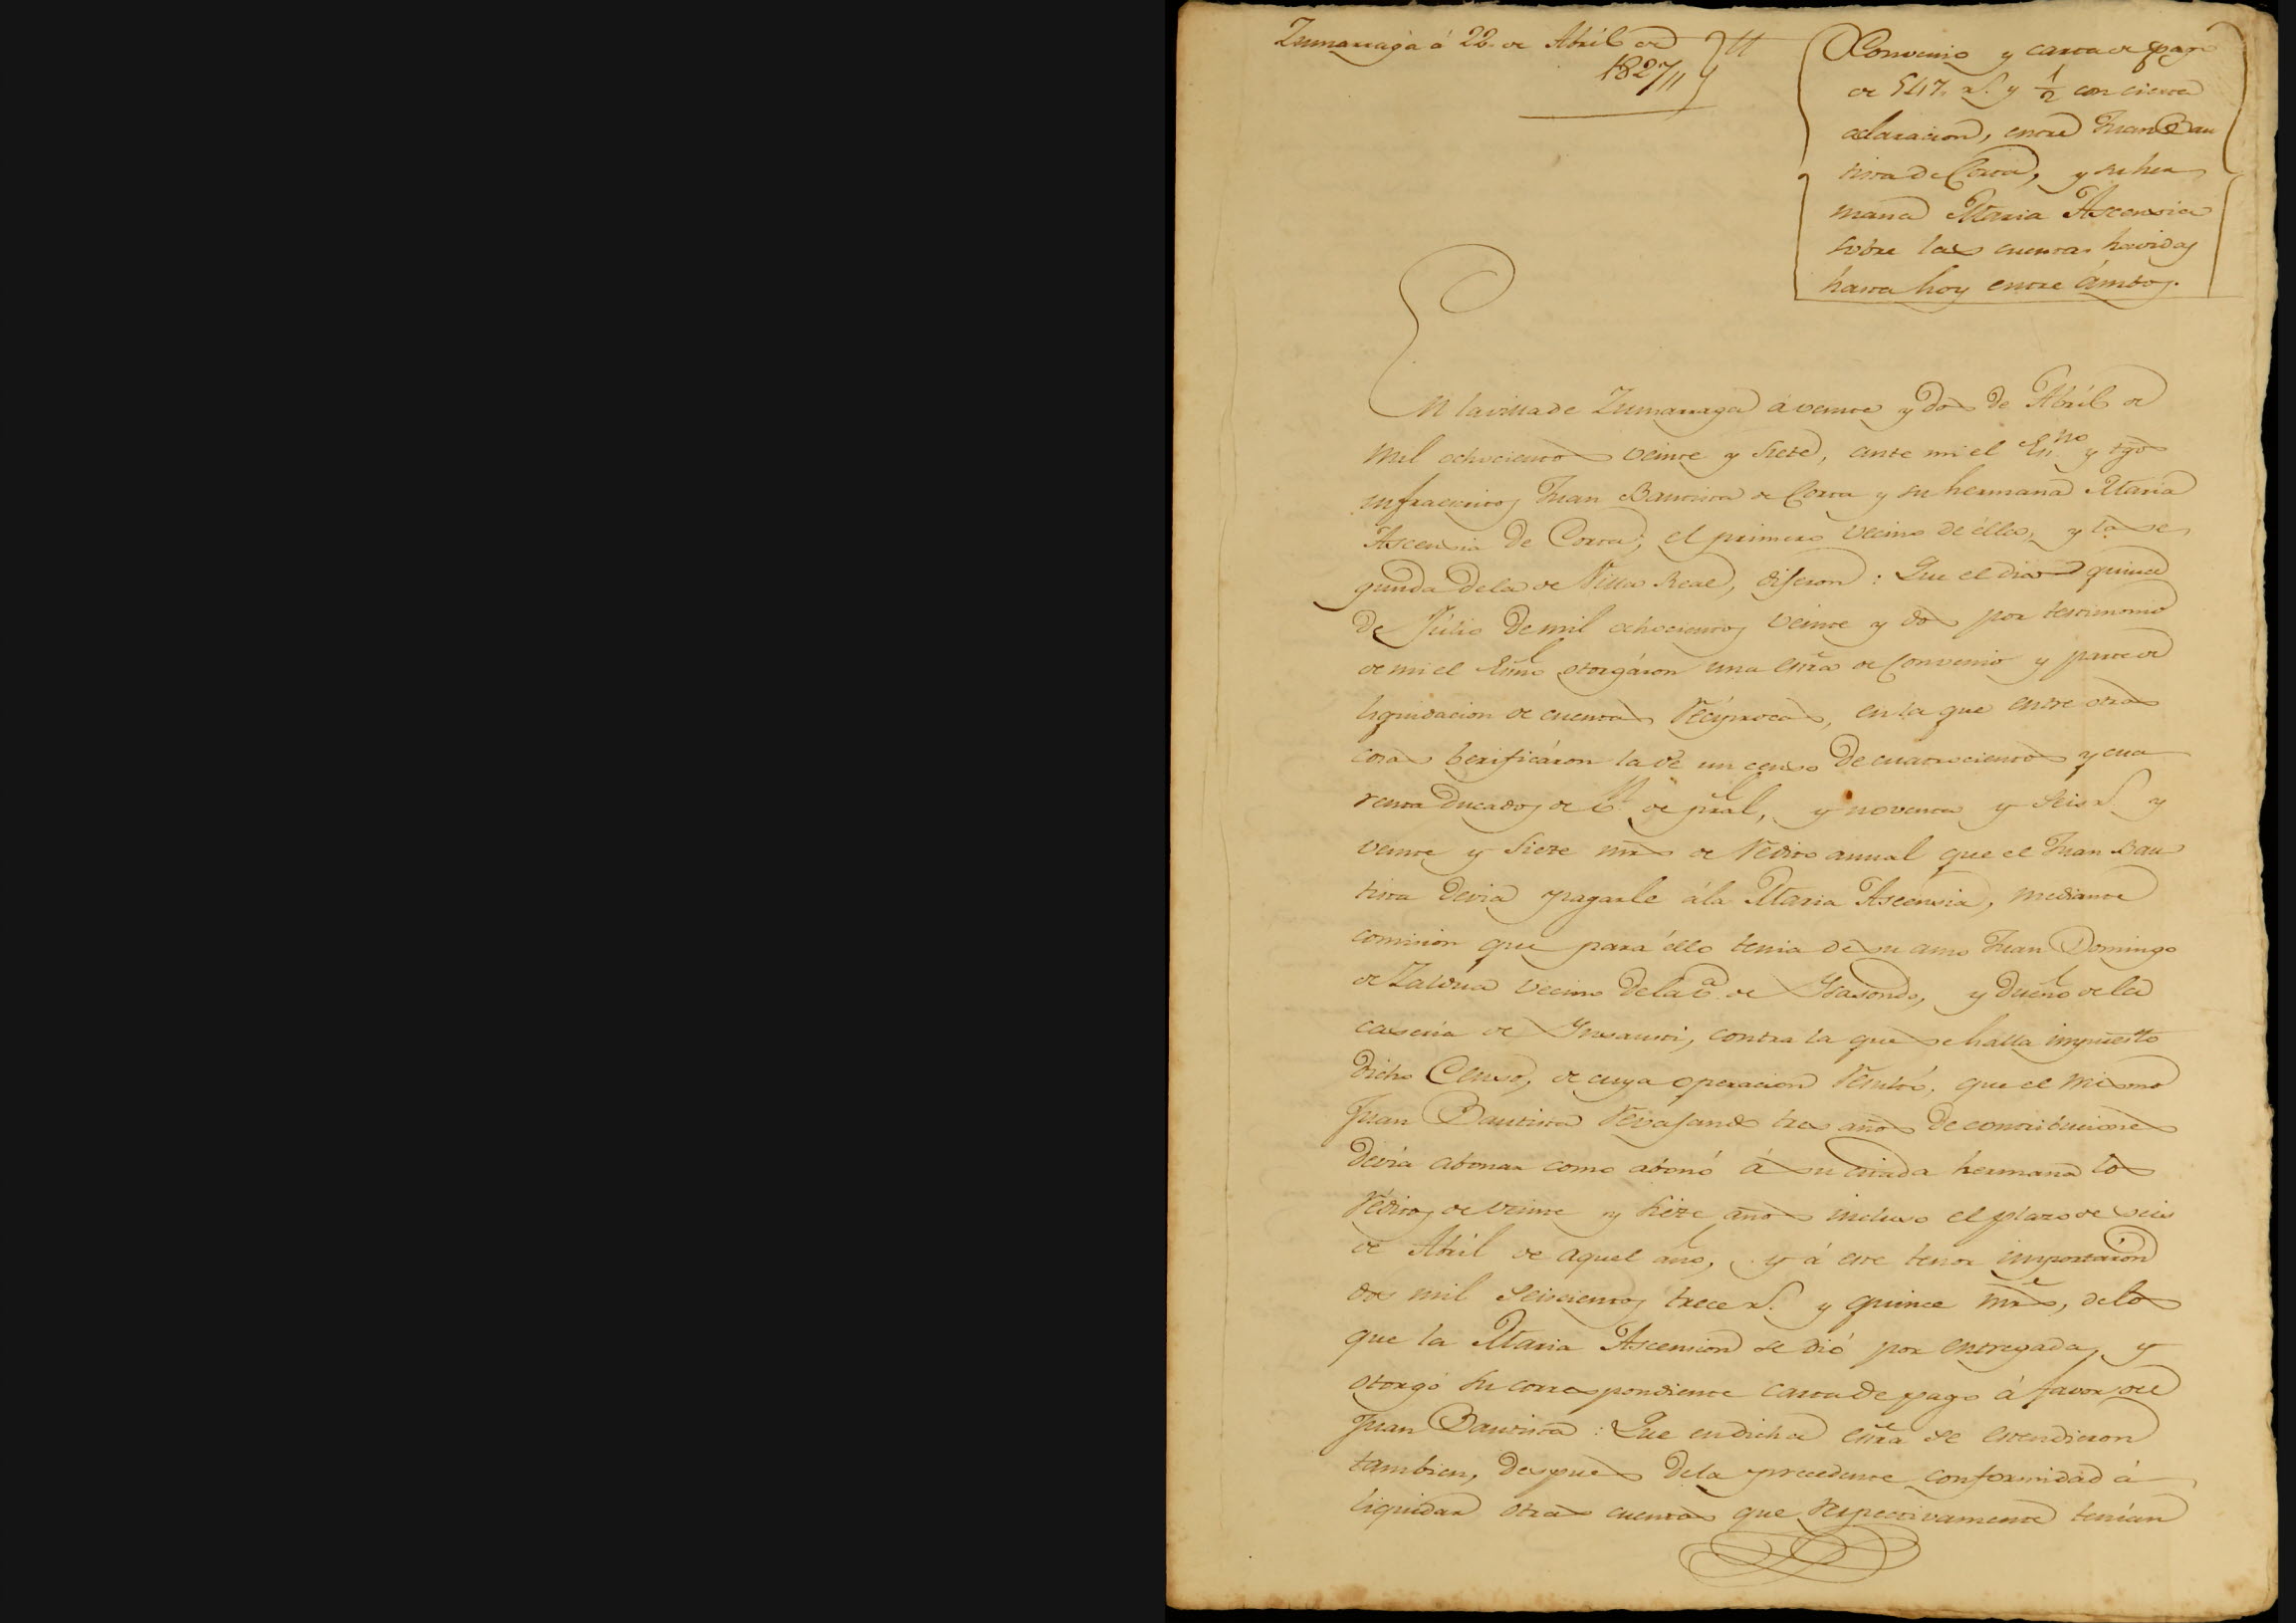 Zumarraga á 22. de Abril de
1827//
Convenio y carta de pago
de 547. rs. y ½ con cierta
aclaracion, entre Juan Bau
tista de Corta, y su her
mana Maria Ascensia
sobre las cuentas havidas
hasta hoy entre ámbos.
En la villa de Zumarraga á veinte y dos de Abril de
mil ochocientos veinte y siete, ante mi el Esno. y tgos
infraescritos Juan Bautista de Corta y su hermana Maria
Ascensia de Corta, el primero vecino de élla, y la se
gunda de la de Villa Real, dijeron: Que el dia quince
de Júlio de mil ochocientos veinte y dos por testimonio
de mi el Esno otorgáron una esra de Convenio y parte de
liquidacion de cuentas recíprocas, en la que entre otras
cosas berificáron la de un censo de cuatrocientos y cua
renta Ducados de vn. de pral, y noventa y seis rs. y
veinte y siete mrs de rédito anual que el Juan Bau
tista devia pagarle á la Maria Ascensia, mediante
comision que para éllo tenia de su amo Juan Domingo
de Zaldua vecino de la va. de Ysasondo, y dueño de la
caseria de Ynsausti, contra la que se halla impuesto
dicho Censo, de cuya operacion resultó, que el mismo
Juan Bautista revajando tres años de contribuciones
devia abonar como abonó á su citada hermana los
réditos de veinte y siete años incluso el plazo de seis
de Abril de aquel año, y á este tenor importaron
dos mil seiscientos trece rs. y quince mrs, de los
que la Maria Ascension se dió por entregada, y
otorgó su correspondiente carta de pago á favor del
Juan Bautista: Que en dicha esra se estendieron
tambien, despues de la precedente conformidad á
liquidar otras cuentas que respectivamente tenían